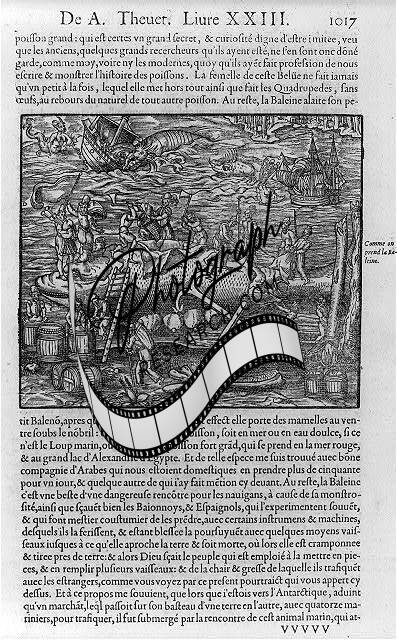 De A. Theuet. Liure XXIII. 1017
poisson grand: qui est certes vn grand secret, & curiosité digne d'estre imitee, veu
que les anciens, quelques grands recercheurs qu'ils ayent esté, ne s'en sont onc dóné
garde, comme moy, voire ny les modernes, quoy qu'ils ayẽt fait profession de nous
escrire & monstrer l'histoire des poissons. La femelle de ceste Beluë ne fait iamais
qu'vn petit à la fois, lequel elle met hors tout ainsi que fait les Quadrupedes, sans
œufs, au rebours du naturel de tout autre poisson. Au reste, la Baleine alaite son pe-
Comme on
prend la Ba-
leine.
Photograph
RESEARCH.COM
tit Balenó, apres qu effect elle porte des mamelles au ven
tre soubs le nõbril: isson, soit en mer ou en eau douce, si ce
n'est le Loup marin, ou isson fort grãd, qui se prend en la mer rouge,
& au grand lac d'Alexandrie d'Egypte. Et de telle espece me suis trouué auec bóne
compagnie d'Arabes qui nous estoient domestiques en prendre plus de cinquante
pour vn iour, & quelque autre de qui i'ay fait mẽtion cy deuant. Au reste, la Baleine
c'est vne beste d'vne dangereuse rencôtre pour les nauigans, à cause de sa monstro-
sité, ainsi que sçauẽt bien les Baionnoys, & Espaignols, qui l'experimentent souuẽt,
& qui font mestier coustumier de les prẽdre, auec certains instrumens & machines,
desquels ils la ferissent, & estant blessee la poursuyuẽt auec quelques moyens vais-
seaux iusques à ce qu'elle aproche la terre & soit morte, où lors elle est cramponnee
& tiree pres de terre: & alors Dieu sçait le peuple qui est emploié à la mettre en pie-
ces, & en remplir plusieurs vaisseaux: & de la chair & gresse de laquelle ils trafiquẽt
auec les estrangers, comme vous voyez par ce present pourtraict qui vous appert cy
dessus. Et à ce propos me souuient, que lors que i'estois vers l'Antarctique, aduint
qu'vn marchãt, leql passoit sur son basteau d'vne terre en l'autre, auec quatorze ma-
riniers, pour trafiquer, il fut submergé par la rencontre de cest animal marin, qui at-
VVVVV